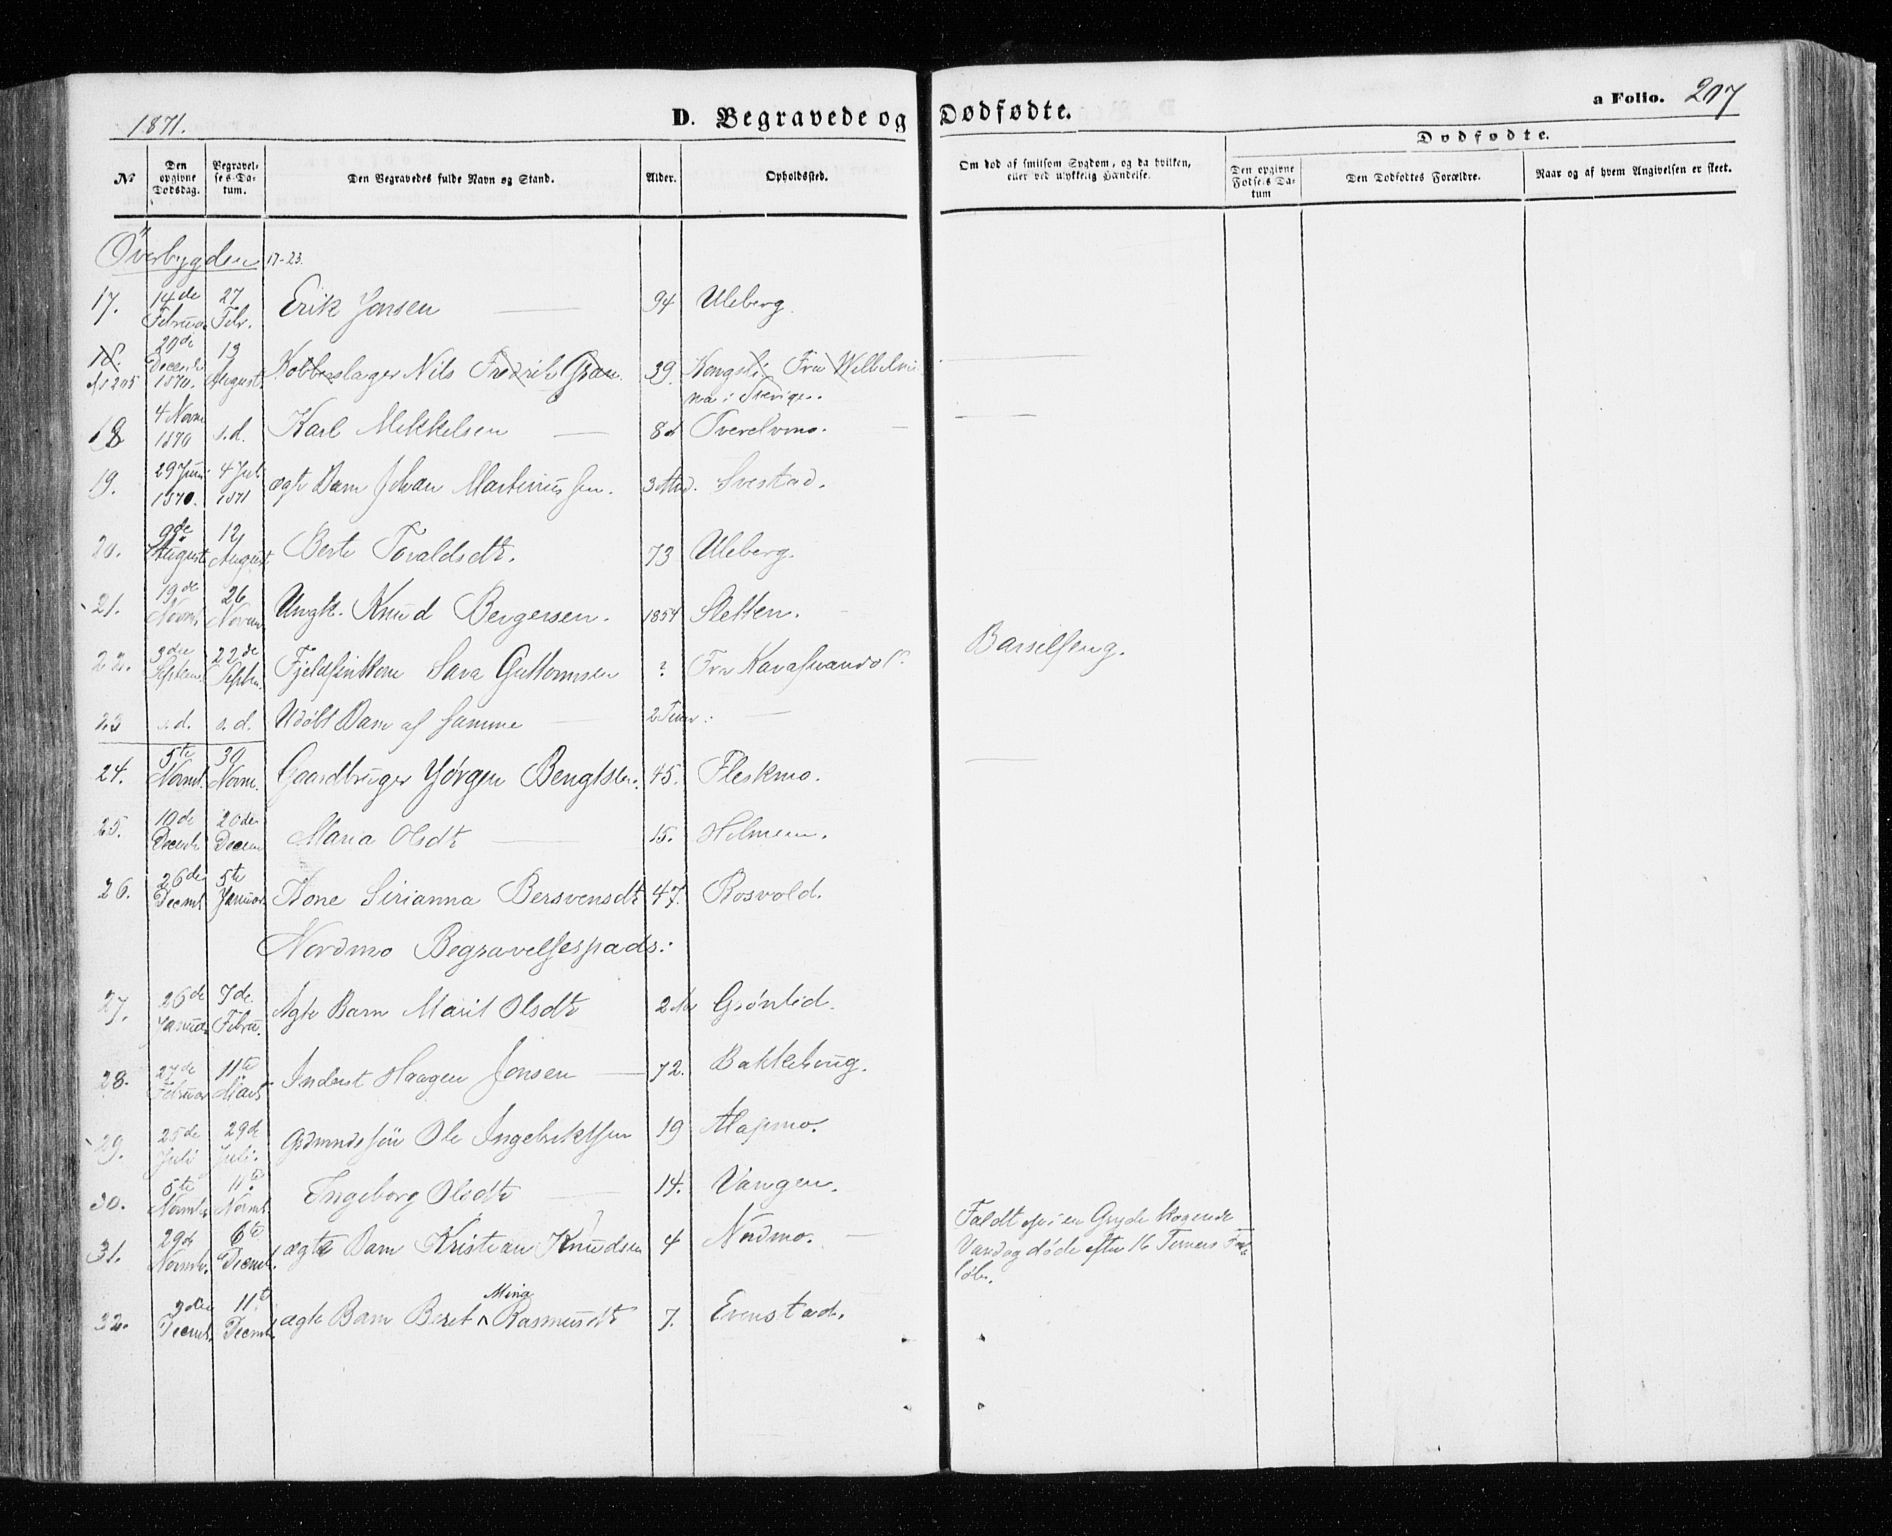 1871.
D. Begravede og Dødfødte.
a Folio. 207
Dødfødte.
No
Den opgivne Dødsdag.
Begravelses Datum.
Den Begravedes fulde Navn og Stand.
Alder.
Opholdssted.
Om død af smitsom Sygdom, og da hvilken, eller ved ulykkelig Hændelse.
Den opgivne Fødsels Datum
Den Dødfødtes Forældre.
Naar og af hvem Angivelsen er skeet.
Överbygden 17-23.
17. 14de Februar 27 Febr. Erik Jonsen 94 Uleberg.
18. 20de Decemb 1870. 13 August Kobberslager Nils Fredrik Gran. 39. Kongsli Fra Wilhelmi
na i Sverige.
18 4 Novm 1870 s.d. Karl Mikkelsen Tverelvmo.
19. 29 Juni 1870. 4 Jul. 1871 ægte Barn Johan Martinussen. 3 Mnd.
20. 9de August 12 August Berte Toraldsdt. 73 Uleberg.
21. 19de Novmb 26 Novem Ungk. Knud Bergersen. 1854 Sletten.
22. 3die Septem 22de Septem. Sara Guttormsen ? Fra Barselseng.
23 s.d. s.d. Udøbt Barn af samme 2 Timer.
24. 5te Novmb. 30 Novm. Gaardbruger Jörgen Bengtsen. 45. Fleskmo.
25. 10de Decemb 20de Decem Maria Olsdt 15. Holmen.
26. 26de Decmb 5te Januar Ane Sirianna Bersvensdt 47. Rosvold.
Nordmo Begravelsesplads:
27. 26de Januar 7de Febru. Ægte Barn Marit Olsdt Grönlid.
28. 27de Februar 11te Marts Inderst Haagen Jonsen 72. Bakkehaug.
29. 25de Juli 29de Juli. Ole Ingebrigtsen 19 Alapmo.
30. 5te Novmb 11te Novmb. Ingeborg Olsdt 14. Vangen.
31. 29de Novmb. 6te Decmb. ægte Barn Kristian Knudsen 4 Nordmo. Faldt i en Gryde kogende
Vand og døde efter 16 Timers For-
löb.
32. 3die Decmb. 11te Decmb. ægte Barn Beret Mina Rasmusdt 7. Evenstad.